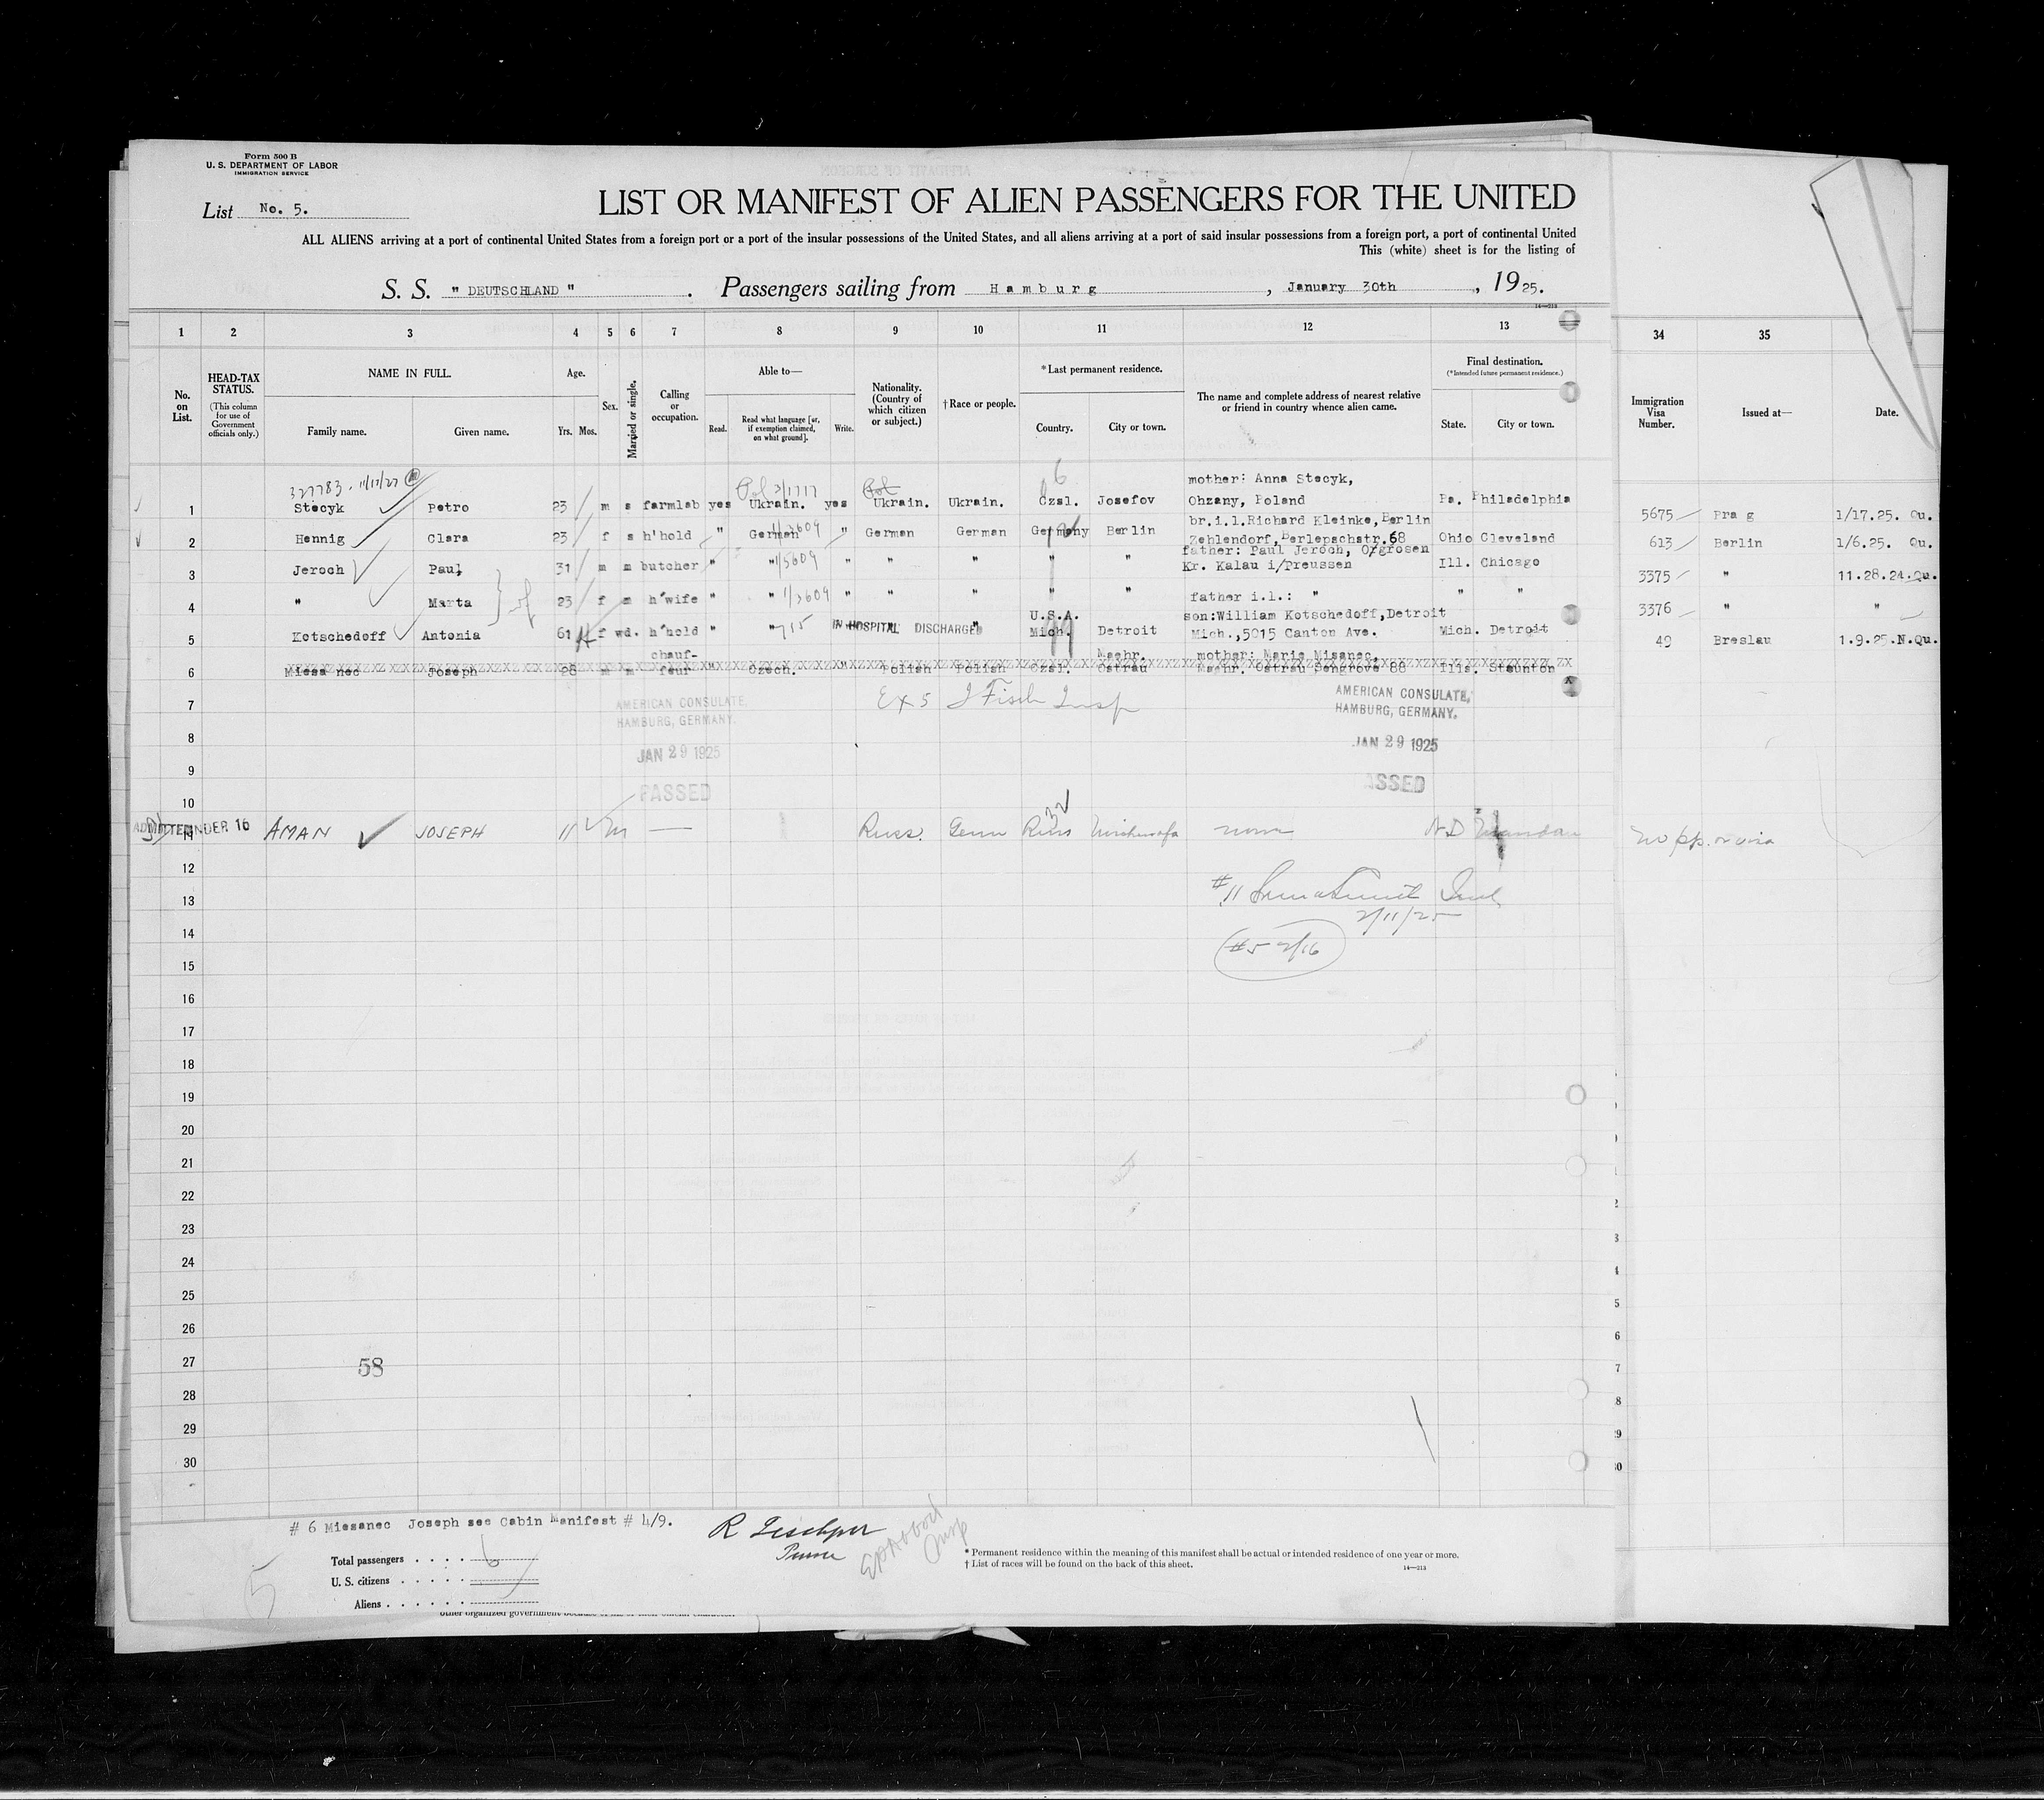 Form 500 B
U. S. DEPARTMENT OF LABOR
IMMIGRATION SERVICE
List No. 5.
LIST OR MANIFEST OF ALIEN PASSENGERS FOR THE UNITED
ALL ALIENS arriving at a port of continental United States from a foreign port or a port of the insular possessions of the United States, and all aliens arriving at a port of said insular possessions from a foreign port, a port of continental United
This (white) sheet is for the listing of
S. S. " DEUTSCHLAND " . Passengers sailing from Hamburg , January 30th , 1925.
14—213
1 2 3 4 5 6 7 8 9 10 11 12 13 34 35
No. on List.
HEAD-TAX STATUS.
(This column for use of Government officials only.)
NAME IN FULL.
Family name. Given name.
Age.
Yrs. Mos.
Sex.
Married or single.
Calling or occupation.
Able to—
Read. Read what language [or, if exemption claimed, on what ground]. Write.
Nationality. (Country of which citizen or subject.)
† Race or people.
* Last permanent residence.
Country. City or town.
The name and complete address of nearest relative or friend in country whence alien came.
Final destination.
(*Intended future permanent residence.)
State. City or town.
Immigration Visa Number.
Issued at—
Date.
327783 - 11/17/27
Pol 3/1717 Pol 6
mother: Anna Stecyk,
1 Stecyk Petro 23 m s farmlab yes Ukrain. yes Ukrain. Ukrain. Czsl. Josefov Ohzany, Poland Pa. Philadelphia 5675 Prag 1/17.25. Qu.
br.i.l.Richard Kleinke, Berlin
2 Hennig Clara 23 f s h'hold " German " German German Germany Berlin Zehlendorf, Berlepschstr.68 Ohio Cleveland 613 Berlin 1/6.25. Qu.
father: Paul Jeroch, O/grosen
3 Jeroch Paul 31 m m butcher " " 1/3609 " " " " " Kr. Kalau i/Preussen Ill. Chicago 3375 " 11.28.24.Qu.
4 " Marta 23 f m h'wife " " 1/3609 " " " " " father i.l.: " " " 3376 " "
U.S.A. son:William Kotschedoff,Detroit
5 Kotschedoff Antonia 61 f wd. h'hold " " 715 IN HOSPITAL DISCHARGED " Mich. Detroit Mich.,5015 Canton Ave. Mich. Detroit 49 Breslau 1.9.25.N.Qu.
chauf- Maehr. mother: Marie Misanec,
6 Miesanec Joseph 28 m m feur " Czech. " Polish Polish Czsl. Ostrau Maehr. Ostrau Ills. Staunton
7 Ex 5 J Fisch Insp
AMERICAN CONSULATE,
HAMBURG, GERMANY.
JAN 29 1925
PASSED
AMERICAN CONSULATE,
HAMBURG, GERMANY.
JAN 29 1925
PASSED
8
9
10
32
ADMITTED UNDER 16
11 AMAN JOSEPH 11 m — Russ. Germ Russ none N.D Mandan no pp. or visa
12
#11
13
2/11/25
14
#5 2/16
15
16
17
18
19
20
21
22
23
24
25
26
27
58
28
29
30
# 6 Miesanec Joseph see Cabin Manifest # 4/9.
Total passengers . . . . 6
U. S. citizens . . . . .
Aliens . . . . . .
5
* Permanent residence within the meaning of this manifest shall be actual or intended residence of one year or more.
† List of races will be found on the back of this sheet.
14—213